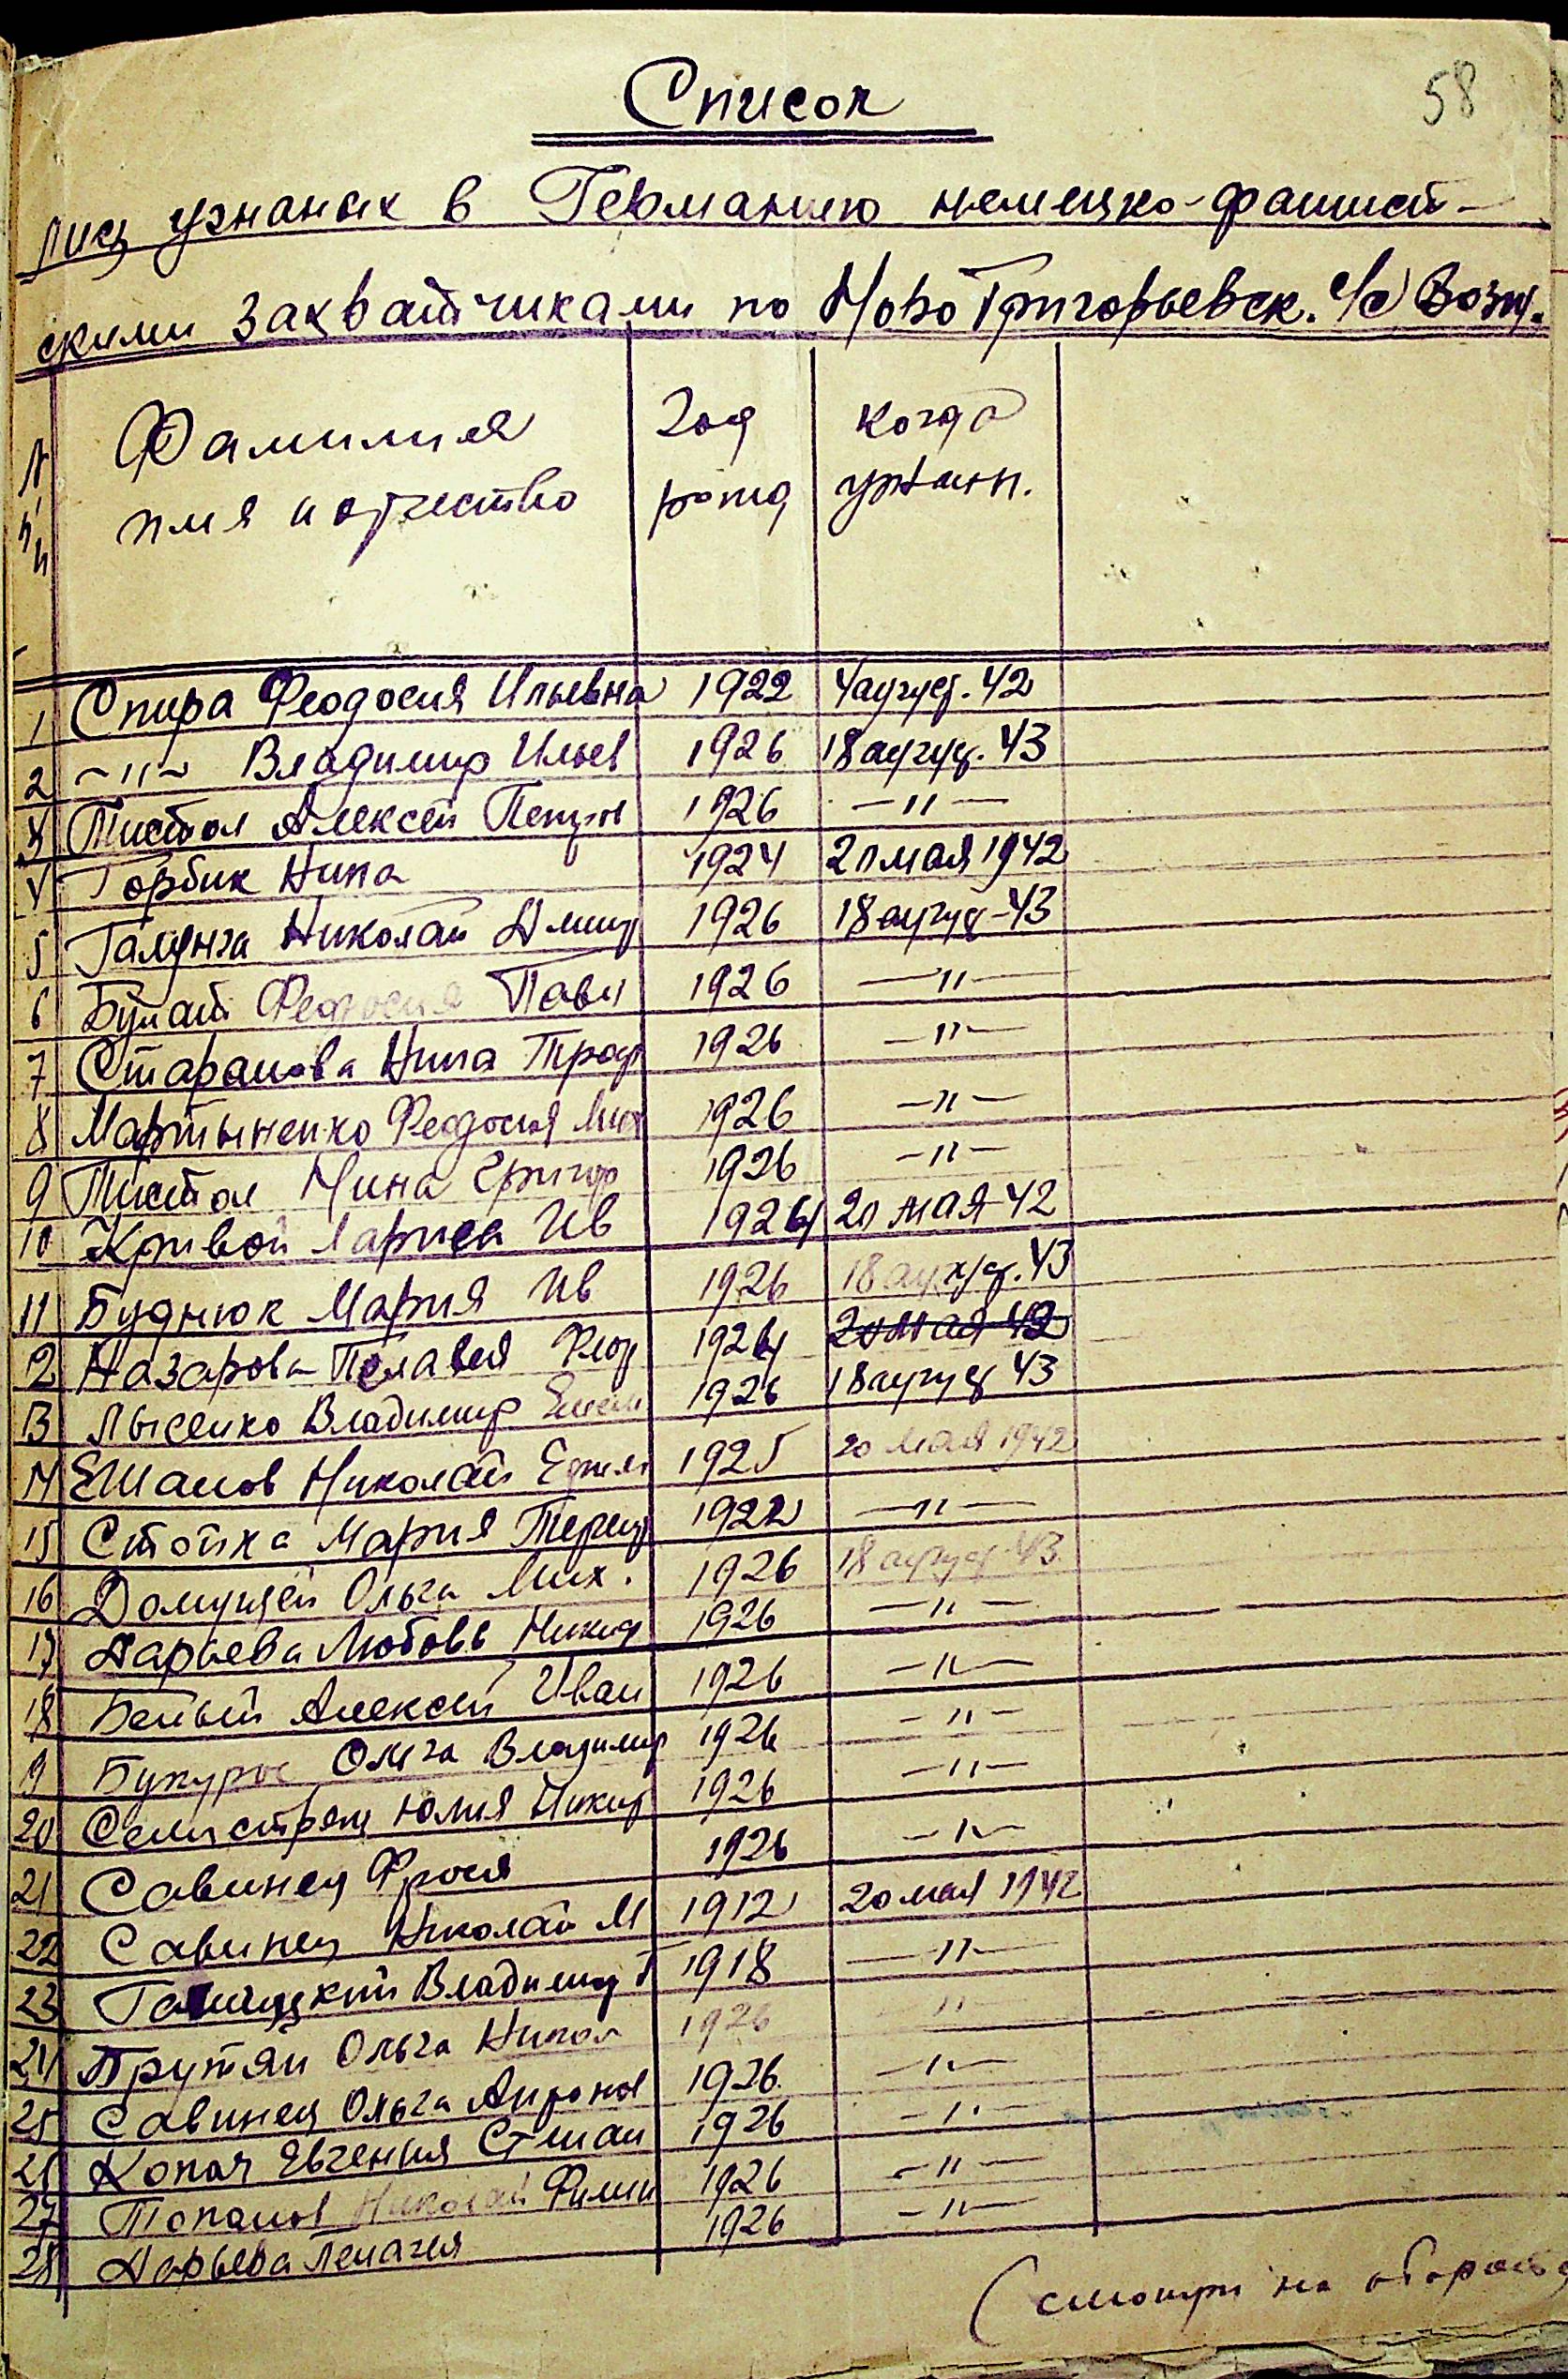 58
Список
лиц угнаных в Германию немецко-фашист-
скими захватчиками по Ново Григорьевск. с/с Возн.
№ п/п Фамилия имя и отчество Год рожд когда угнан.
1 Спира Феодосия Ильевна 1922 4 август. 42
2 -"- Владимир Ильев 1926 18 август. 43
3 Пистол Алексей Петров 1926 -"-
4 Горбик Нина 1924 20 мая 1942
5 Николай Дмитр 1926 18 август-43
6 Булат Феодосия Павл 1926 -"-
7 Нина Троф 1926 -"-
8 Мартыненко Феодосия Мих 1926 -"-
9 Пистол Нина Григор 1926 -"-
10 Кривой Лариса Ив 1924 20 мая-42
11 Буднюк Мария Ив 1926 18 август. 43
12 Назарова Пелагея Феод 1924 20 мая 42
13 Лысенко Владимир 1926 18 август 43
14 Ешанов Николай Ефим 1925 20 мая 1942
15 Стойка Мария Терент 1922 -"-
16 Ольга Мих. 1926 18 август-43
17 Дарьева Любовь Никиф 1926 -"-
18 Белый Алексей Иван 1926 -"-
19 Ольга Владимир 1926 -"-
20 Юлия Никиф 1926 -"-
21 Савинец Фрося 1926 -"-
22 Савинец Николай М 1912 20 мая 1942
23 Владимир Г 1918 -"-
24 Прутян Ольга Никол 1926 -"-
25 Савинец Ольга Андронов 1926 -"-
26 Копач Евгения Степан 1926 -"-
27 Николай Филип 1926 -"-
28 Дарьева Пелагея 1926 -"-
(смотри на обороте